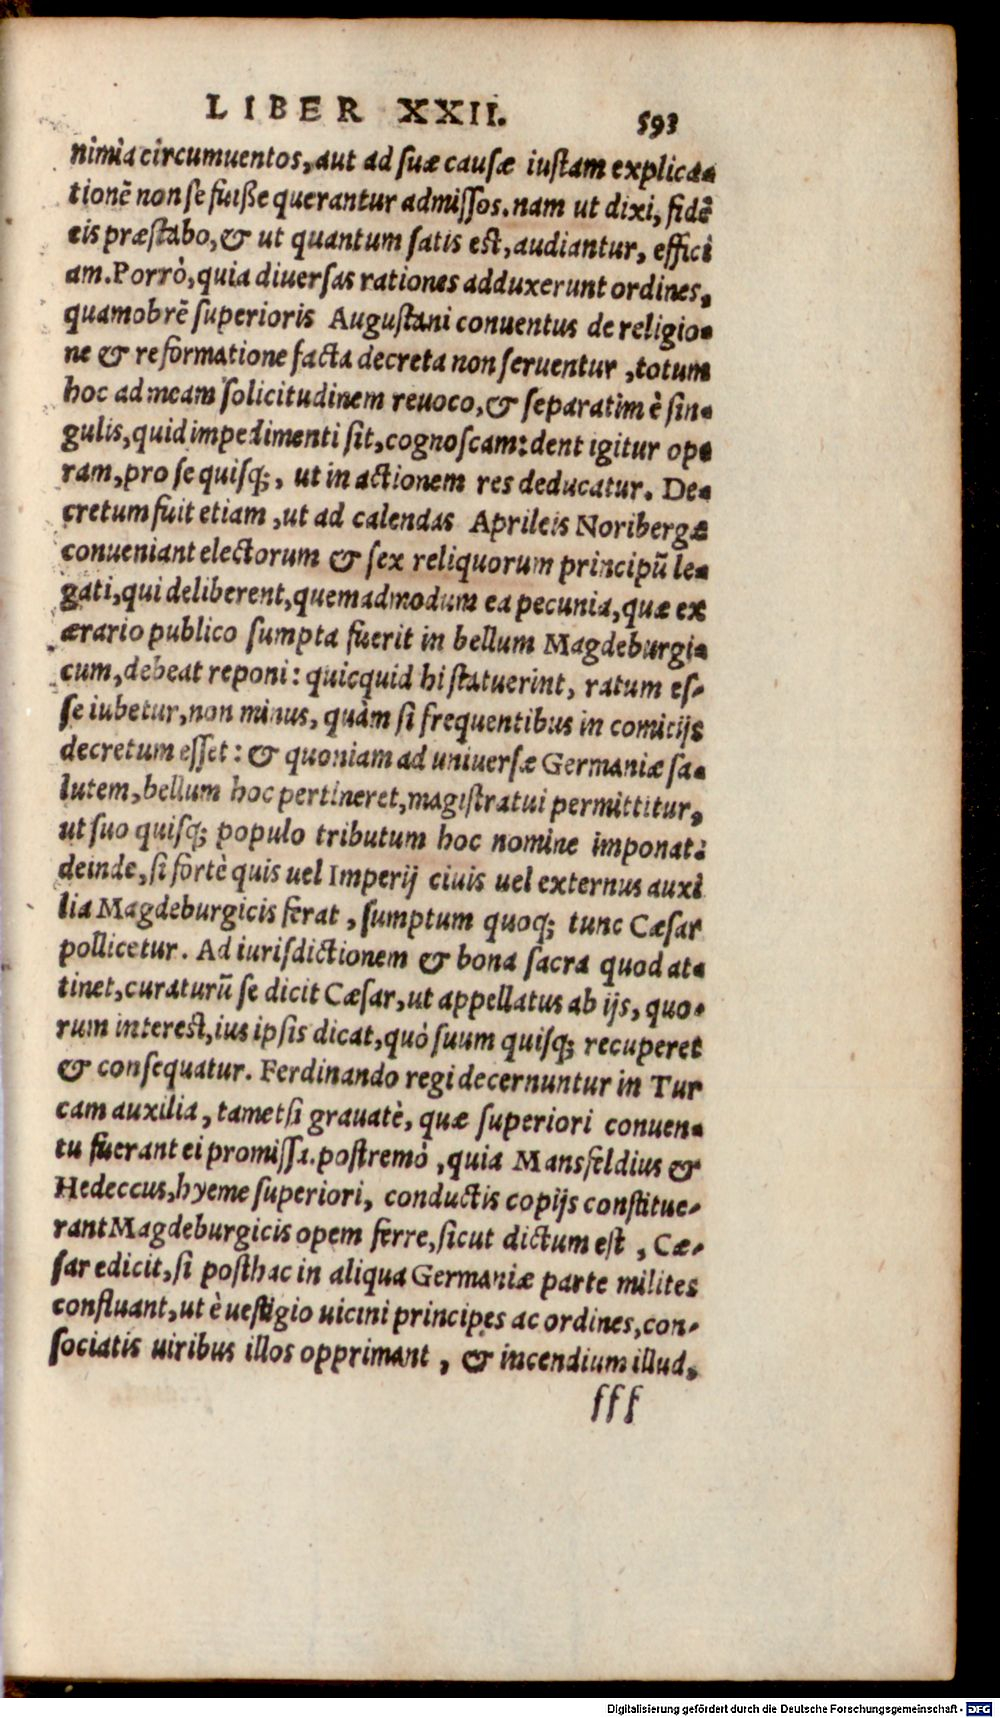 LIBER XXII. 593
nimia circumuentos, aut ad suæ causæ iustam explica-
tionē non se fuiße querantur admissos. nam ut dixi, fidē
eis præstabo, & ut quantum satis est, audiantur, effici
am. Porrò, quia diuersas rationes adduxerunt ordines,
quamobrē superioris Augustani conuentus de religio-
ne & reformatione facta decreta non seruentur, totum
hoc ad meam solicitudinem reuoco, & separatim è sin-
gulis, quid impedimenti sit, cognoscam: dent igitur ope
ram, pro se quisq;, ut in actionem res deducatur. De-
cretum fuit etiam, ut ad calendas Aprileis Noribergæ
conueniant electorum & sex reliquorum principū le-
gati, qui deliberent, quemadmodum ea pecunia, quæ ex
ærario publico sumpta fuerit in bellum Magdeburgi-
cum, debeat reponi: quicquid hi statuerint, ratum es-
se iubetur, non minus, quàm si frequentibus in comitijs
decretum esset: & quoniam ad uniuersæ Germaniæ sa-
lutem, bellum hoc pertineret, magistratui permittitur,
ut suo quisq; populo tributum hoc nomine imponat:
deinde, si fortè quis uel Imperij ciuis uel externus auxi
lia Magdeburgicis ferat, sumptum quoq; tunc Cæsar
pollicetur. Ad iurisdictionem & bona sacra quod at-
tinet, curaturū se dicit Cæsar, ut appellatus ab ijs, quo-
rum interest, ius ipsis dicat, quò suum quisq; recuperet
& consequatur. Ferdinando regi decernuntur in Tur
cam auxilia, tametsi grauatè, quæ superiori conuen-
tu fuerant ei promissa. postremò, quia Mansfeldius &
Hedeccus, hyeme superiori, conductis copijs constitue-
rant Magdeburgicis opem ferre, sicut dictum est, Cæ-
sar edicit, si posthac in aliqua Germaniæ parte milites
confluant, ut è uestigio uicini principes ac ordines, con-
sociatis uiribus illos opprimant, & incendium illud,
fff
Digitalisierung gefördert durch die Deutsche Forschungsgemeinschaft - DFG